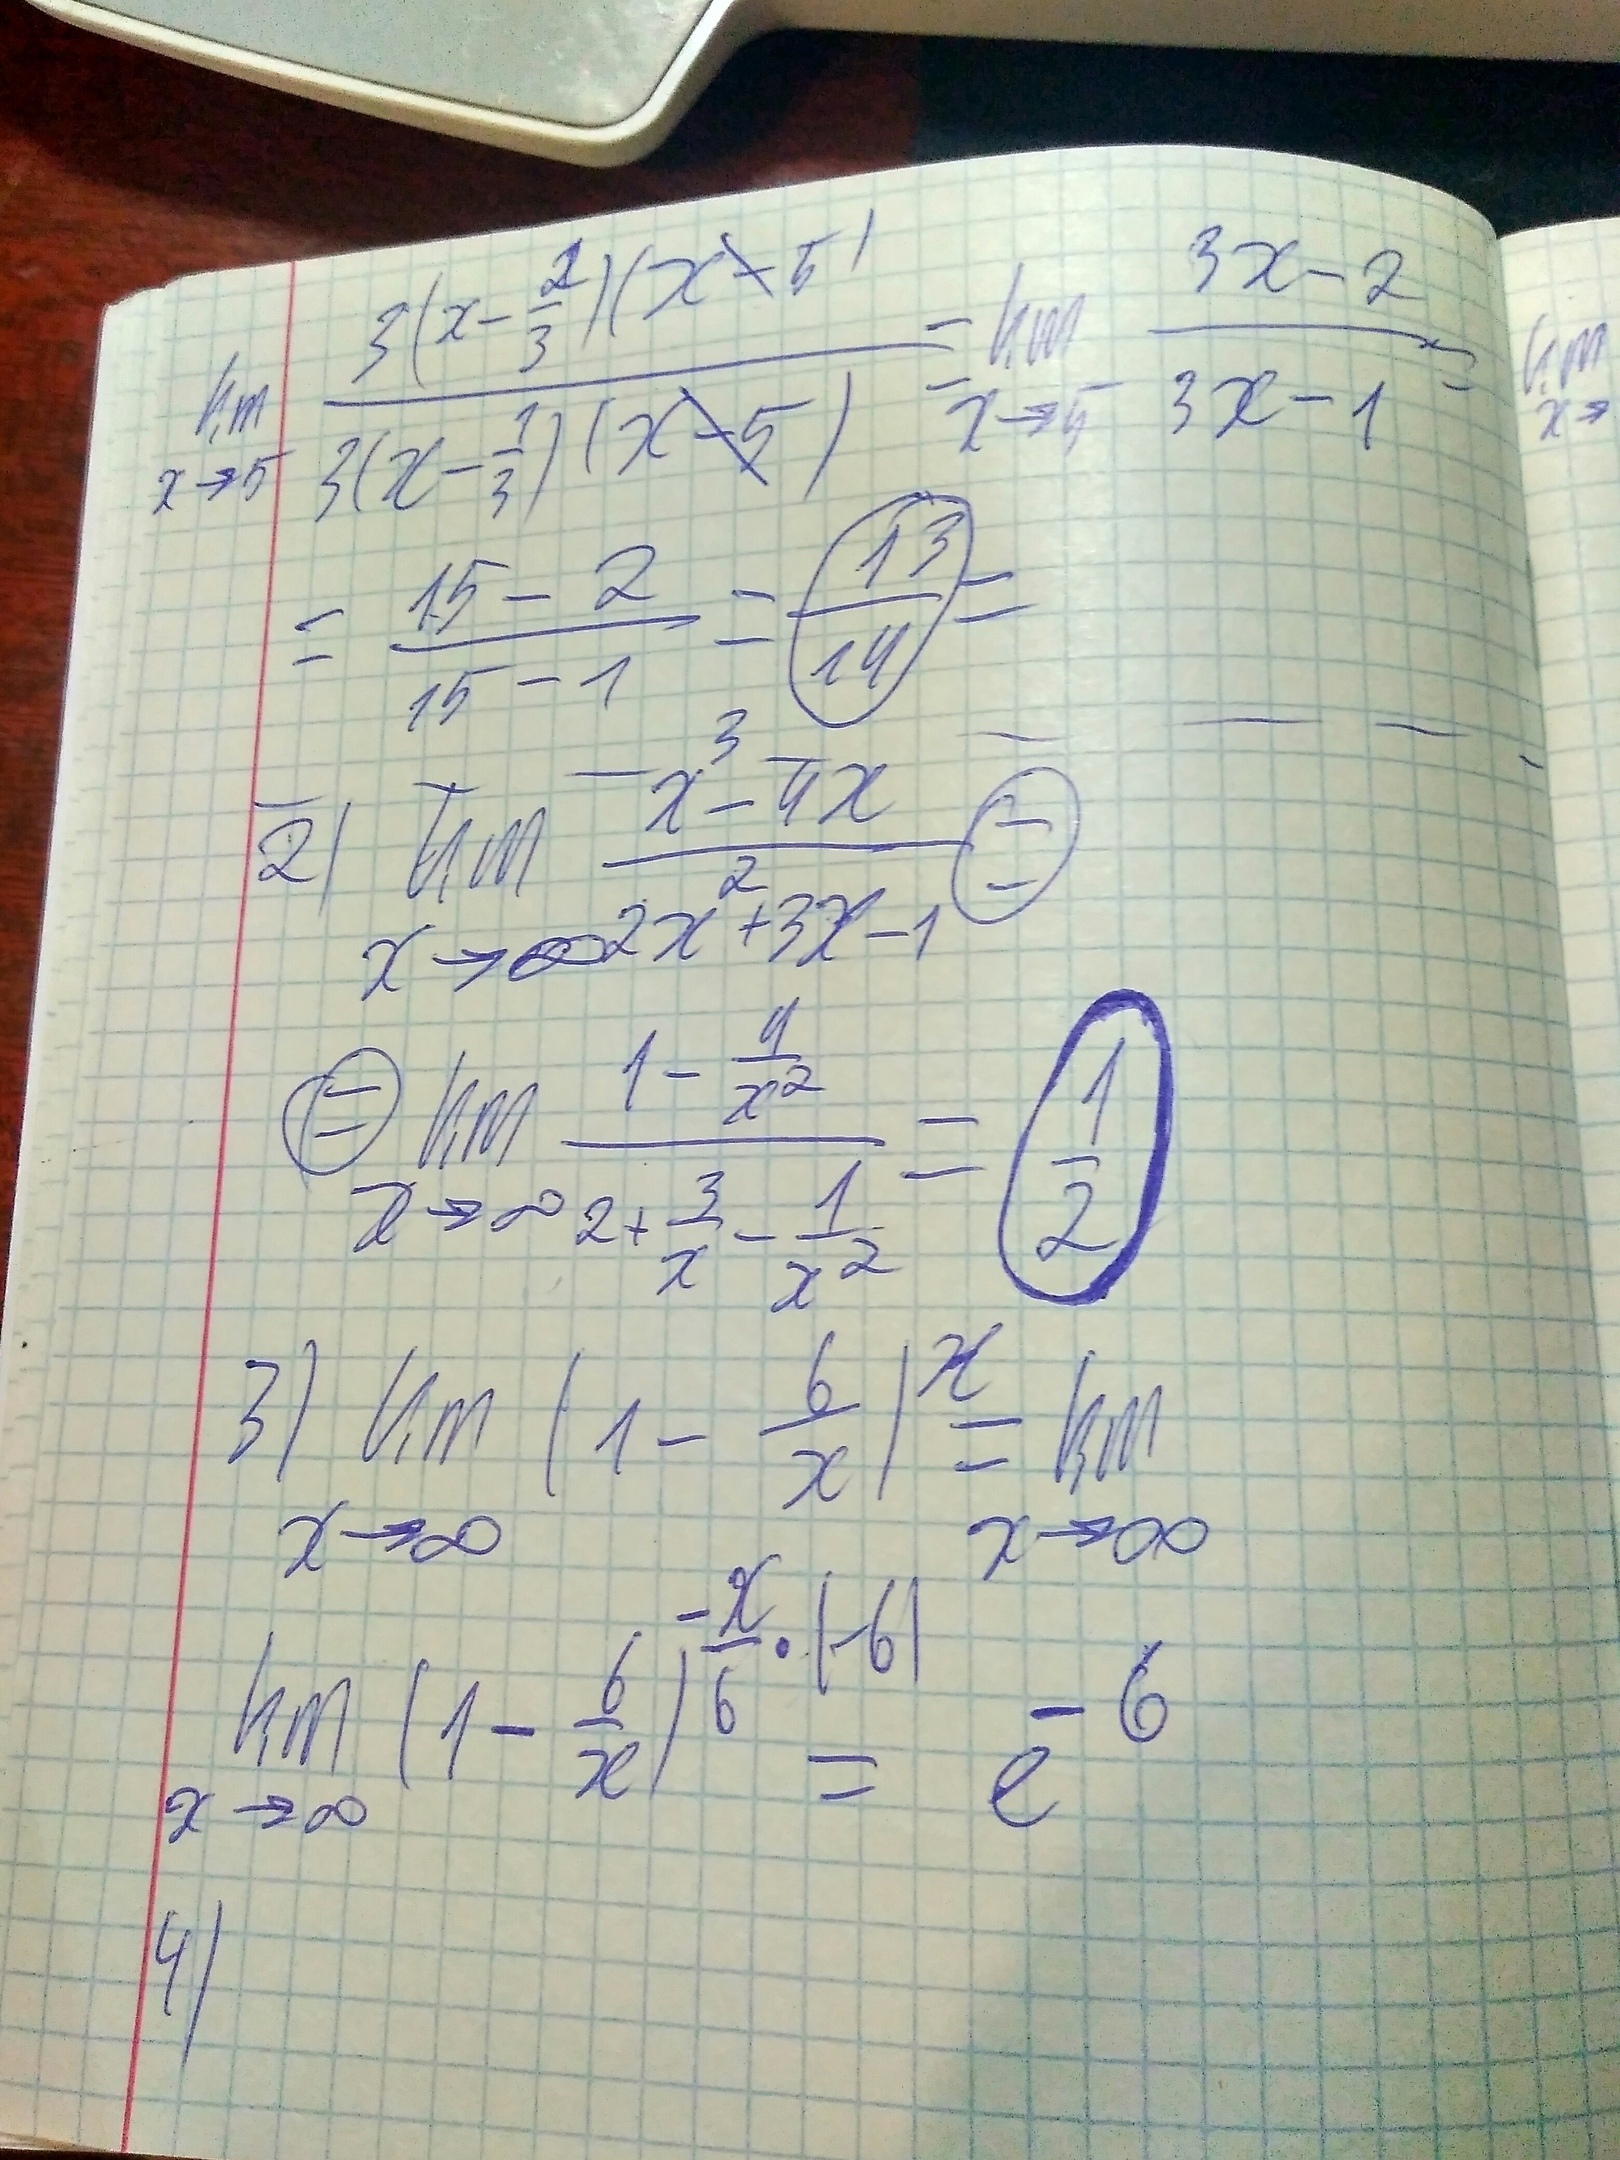 lim x→5 3(x-2/3)(x-5) / 3(x-1/3)(x-5) = lim x→5 3x-2 / 3x-1 =
= 15-2 / 15-1 = 13/14 =
2) lim x→∞ x³-4x / 2x²+3x-1 =
= lim x→∞ 1-4/x² / 2+3/x-1/x² = 1/2
3) lim x→∞ (1-6/x)^x = lim x→∞
lim x→∞ (1-6/x)^(-x/6·(-6)) = e^-6
4)
lim x→